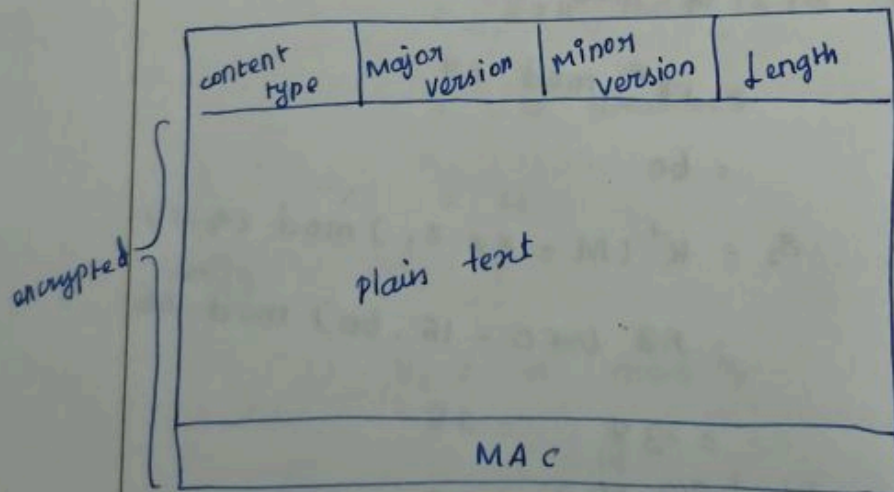 content type
Major version
Minor version
Length
encrypted
plain text
MAC